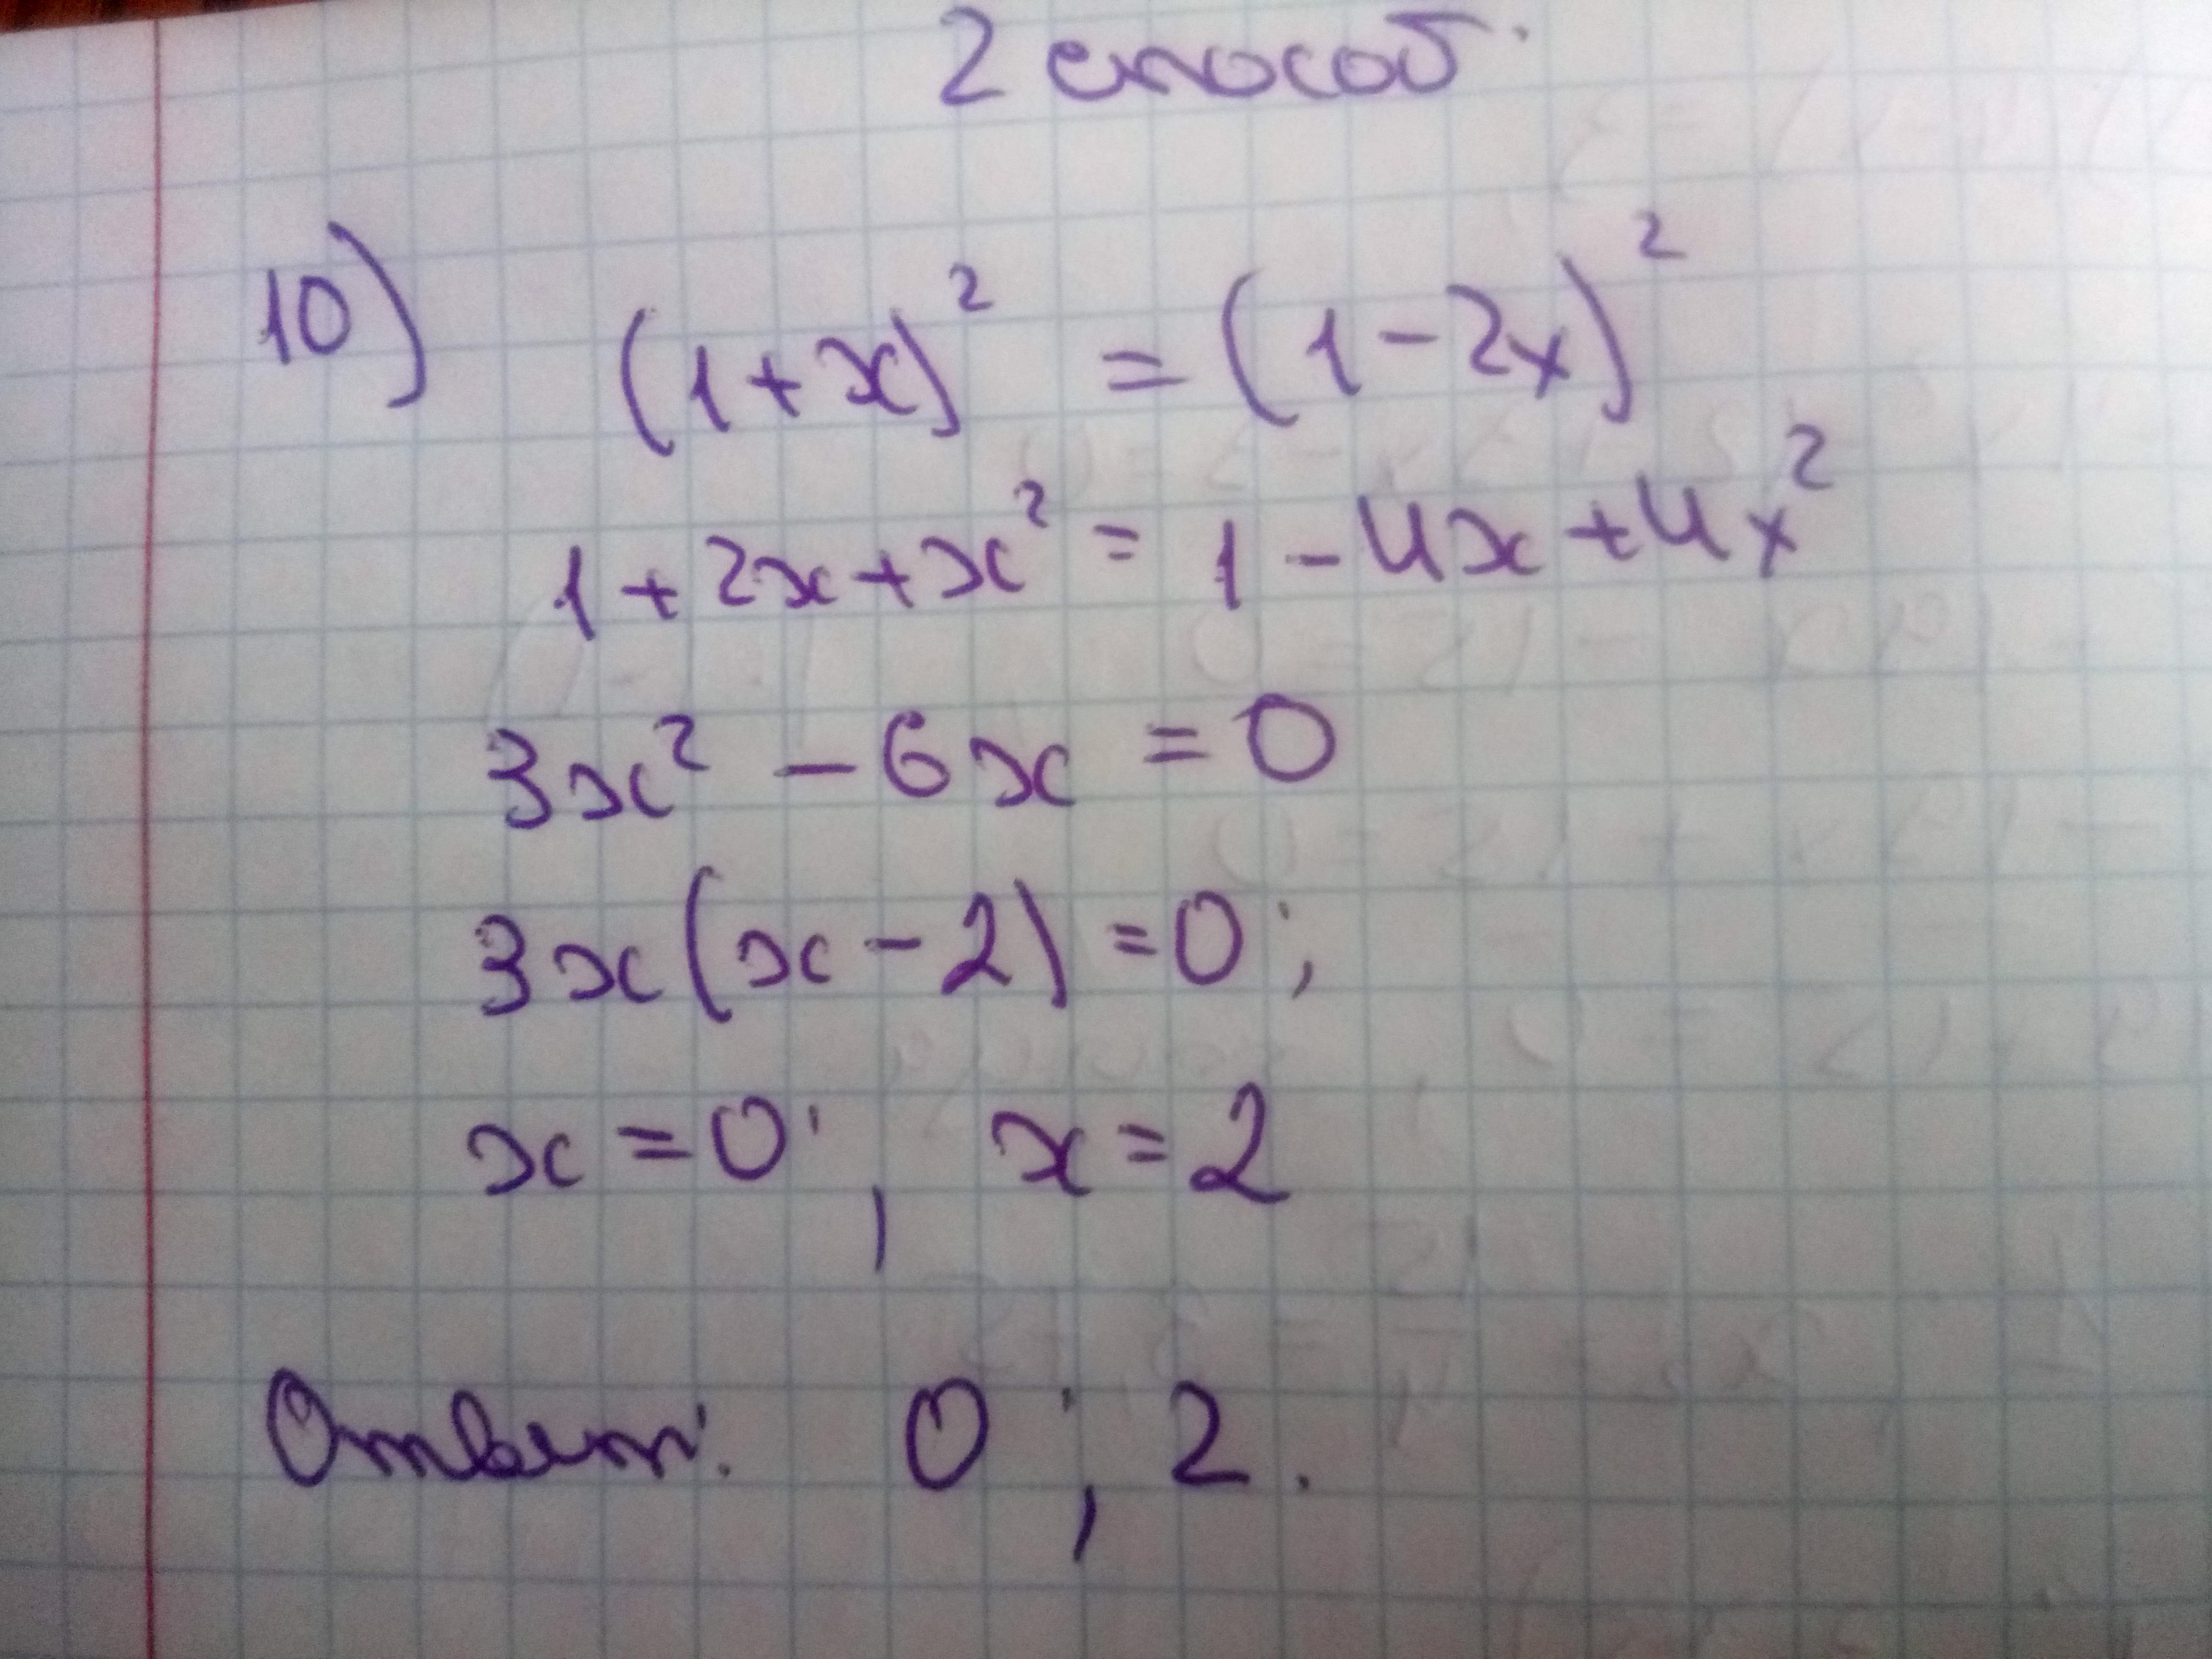 2 способ.
10) (1+x)² = (1-2x)²
1+2x+x² = 1-4x+4x²
3x² - 6x = 0
3x(x-2)=0;
x=0; x=2
Ответ: 0; 2.